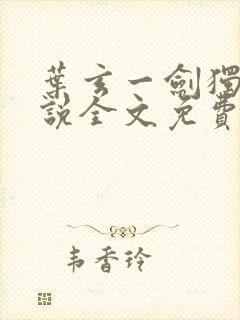 葉玄一劍獨
說全文免費
韦香玲